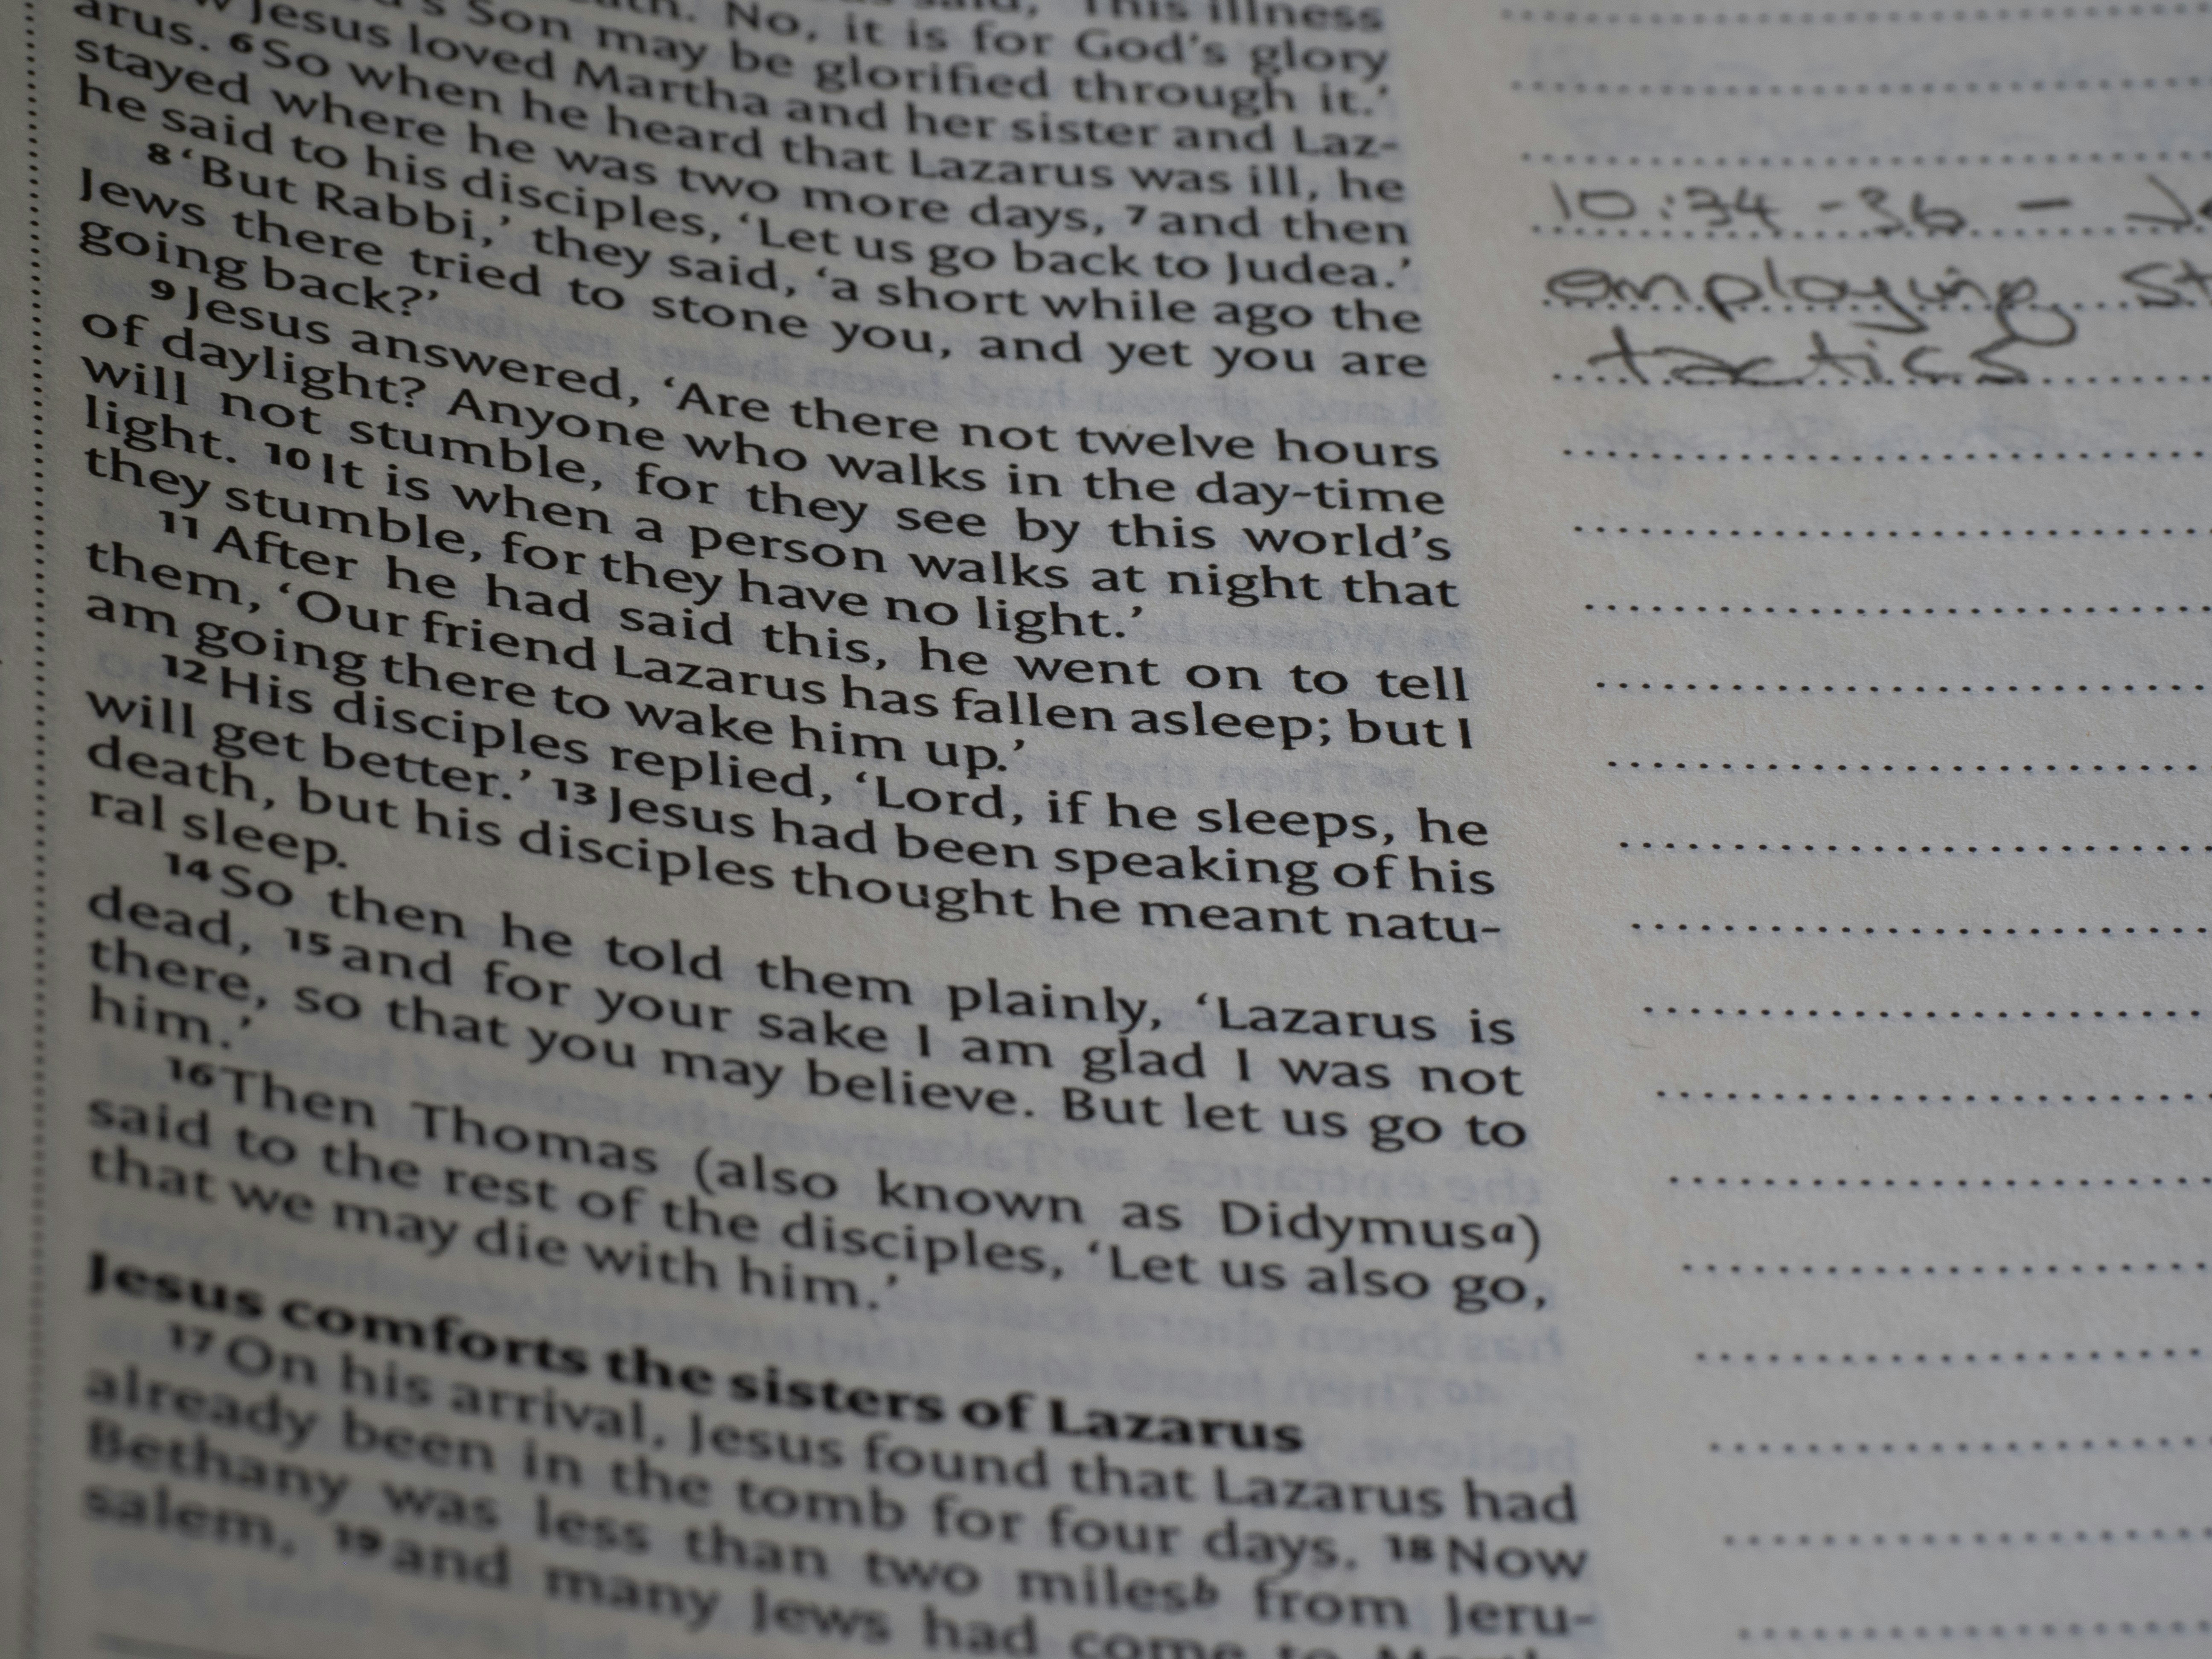 said, 'This illness
death. No, it is for God's glory
Son may be glorified through it.'
Jesus loved Martha and her sister and Laz-
arus. 6 So when he heard that Lazarus was ill, he
stayed where he was two more days, 7 and then
he said to his disciples, 'Let us go back to Judea.'
8 'But Rabbi,' they said, 'a short while ago the
Jews there tried to stone you, and yet you are
going back?'
9 Jesus answered, 'Are there not twelve hours
of daylight? Anyone who walks in the day-time
will not stumble, for they see by this world's
light. 10 It is when a person walks at night that
they stumble, for they have no light.'
11 After he had said this, he went on to tell
them, 'Our friend Lazarus has fallen asleep; but I
am going there to wake him up.'
12 His disciples replied, 'Lord, if he sleeps, he
will get better.' 13 Jesus had been speaking of his
death, but his disciples thought he meant natu-
ral sleep.
14 So then he told them plainly, 'Lazarus is
dead, 15 and for your sake I am glad I was not
there, so that you may believe. But let us go to
him.'
16 Then Thomas (also known as Didymus a)
said to the rest of the disciples, 'Let us also go,
that we may die with him.'
Jesus comforts the sisters of Lazarus
17 On his arrival, Jesus found that Lazarus had
already been in the tomb for four days. 18 Now
Bethany was less than two miles b from Jeru-
salem, 19 and many Jews had come to
10:34-36 -
employing
tactics